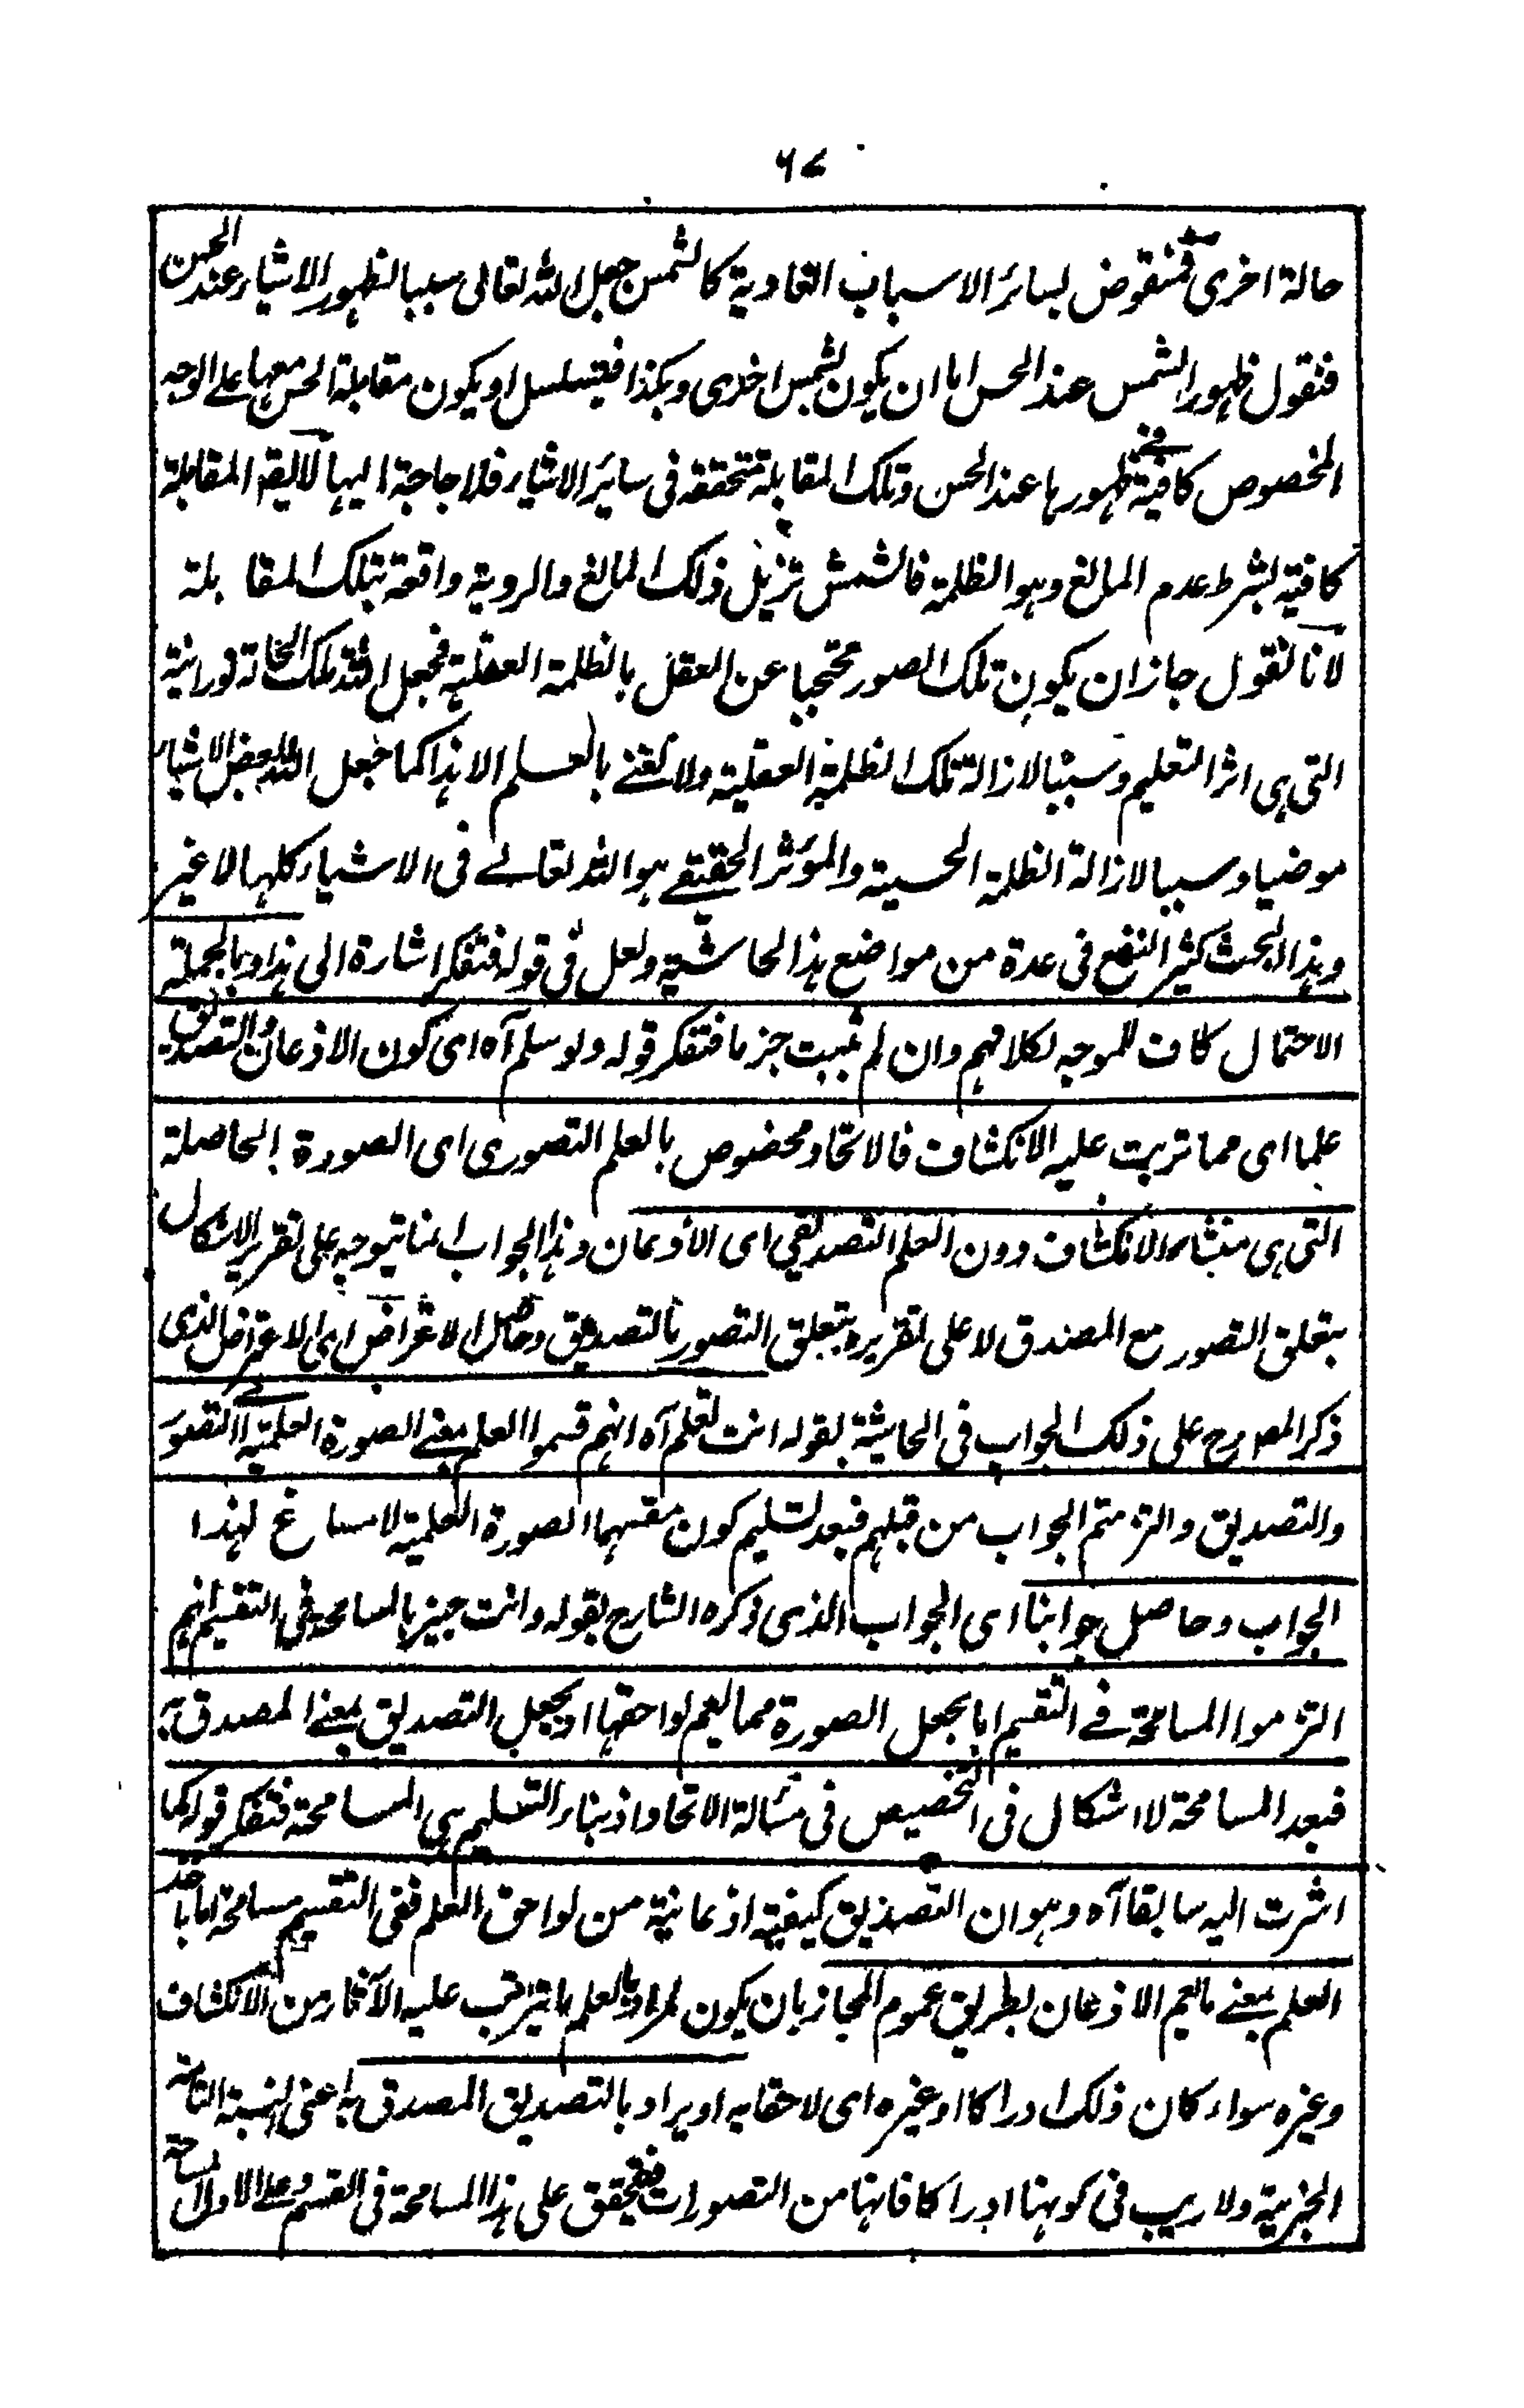 ٦٧
حالة اخرى فمنقوض بسائر الاسباب العادية كالشمس جعل الله تعالى سببا لظهور الاشياء عند الحس
فنقول ظهور الشمس عند الحس اما ان يكون بشمس اخرى وهكذا فيتسلسل او يكون مقابلة الحس معها على الوجه
المخصوص كافية فى ظهورها عند الحس وتلك المقابلة متحققة فى سائر الاشياء فلا حاجة اليها لا يقه المقابلة
كافية بشرط عدم المانع وهو الظلمة فالشمس تزيل ذلك المانع والروية واقعة بتلك المقابلة
لانا نقول جاز ان يكون تلك الصور محتجبا عن العقل بالظلمة العقلية فجعل الله تلك الحالة نورانية
التى هى اثر التعليم وسببا لازالة تلك الظلمة العقلية ولا نعنے بالعلم الا هذا كما جعل الله بعض الاشياء
موضيا وسببا لازالة الظلمة الحسية والمؤثر الحقيقے هو الله تعالے فى الاشياء كلها لا غير
وهذا البحث كثير النفع فى عدة من مواضع هذا الحاشية ولعل فى قوله فتفكر اشارة الى هذا وبالجملة
الاحتمال كاف للموجه لكلامهم وان لم يثبت جزما فتفكر قوله ولو سلم آه اى كون الاذعان والتصديق
علما اى مما ترتب عليه الانكشاف فالاتحاد مخصوص بالعلم التصورى اى الصورة الحاصلة
التى هى منشاء الانكشاف دون العلم التصديقى اى الاذعان وهذا الجواب انما يتوجه على تقرير الاشكال
بتعلق التصور مع المصدق لا على تقريره بتعلق التصور بالتصديق وحاصل الاعتراض اى الاعتراض الذى
ذكر المصرح على ذلك الجواب فى الحاشية بقوله انت تعلم آه انهم قسموا العلم بمعنے الصورة العلمية الى التصور
والتصديق والتزمتم الجواب من قبلهم فبعد تسليم كون مقسهما الصورة العلمية لا مساغ لهذا
الجواب وحاصل جوابنا اى الجواب الذى ذكره الشارح بقوله وانت خبير بالمسامحة فى التقسيم انهم
التزموا المسامحة فے التقسيم اما بجعل الصورة مما يعم لواحقها او بجعل التصديق بمعنے المصدق به
فبعد المسامحة لا اشكال فى التخصيص فى مسٔالة الاتحاد اذ بناء التسليم هى المسامحة فتفكر قوله كما
اشرت اليه سابقا آه وهو ان التصديق كيفية اذعانية من لواحق العلم ففى التقسيم مسامحة اما باخذ
العلم بمعنے ما يعم الاذعان بطريق عموم المجاز بان يكون المراد بالعلم ما يترتب عليه الآثار من الانكشاف
وغيره سواء كان ذلك ادراكا او غيره اى لاحقا به او يراد بالتصديق المصدق به اعنى النسبة التامة
الخبرية ولا ريب فى كونها ادراكا فانها من التصورات فيتحقق على هذا المسامحة فى القسم وعلى الاول المسامحة